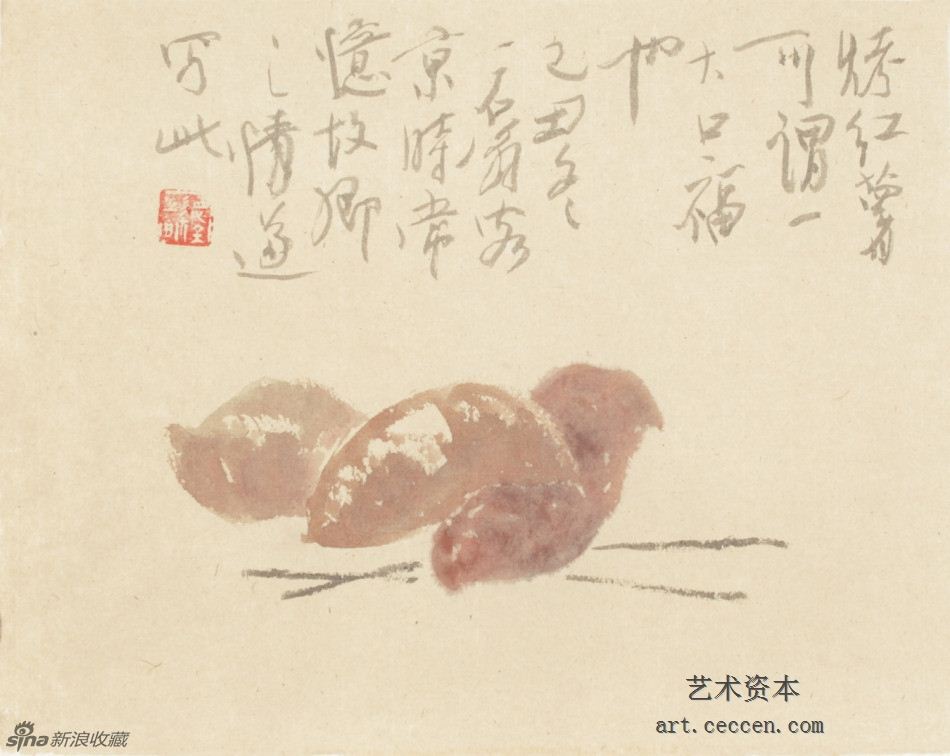 烤红薯
可谓一
大口福
也
己丑冬
一石翁客
京時常
憶故鄉
之情遂
写此
艺术资本
art.ceccen.com
sina新浪收藏